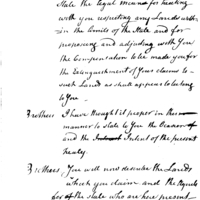 State the legal means for treating
with you respecting any Lands with-
in the limits of the State and for
proposing and adjusting with You
the Compensation to be made you for
the Extinguishment of Your claims to
such Land as shall appear to belong
to You.
Brothers I have thought it proper in this
manner to state to You the Occasion of
and the Intent of the present
treaty.
Brothers, You will now describe the Lands
which you claim and the Agents
for the State who are here present